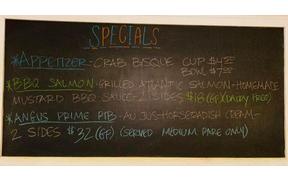 SPECIALS
*APPETIZER-CRAB BISQUE CUP $4.
BOWL $7.
*BBQ SALMON-GRILLED ATLANTIC SALMON-HOMEMADE
MUSTARD BBQ SAUCE-2 SIDES $18(GF)(DAIRY FREE)
*ANGUS PRIME RIB-AU JUS-HORSERADISH CREAM-
2 SIDES $32(GF) (SERVED MEDIUM RARE ONLY)